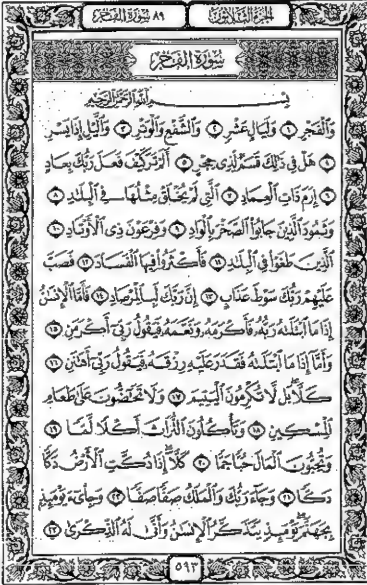 الجزء الثلاثون
٨٩ سورة الفجر
سورة الفجر
بسم الله الرحمن الرحيم
وَٱلْفَجْرِ ١ وَلَيَالٍ عَشْرٍ ٢ وَٱلشَّفْعِ وَٱلْوَتْرِ ٣ وَٱلَّيْلِ إِذَا يَسْرِ
٤ هَلْ فِى ذَٰلِكَ قَسَمٌ لِّذِى حِجْرٍ ٥ أَلَمْ تَرَ كَيْفَ فَعَلَ رَبُّكَ بِعَادٍ
٦ إِرَمَ ذَاتِ ٱلْعِمَادِ ٧ ٱلَّتِى لَمْ يُخْلَقْ مِثْلُهَا فِى ٱلْبِلَٰدِ ٨
وَثَمُودَ ٱلَّذِينَ جَابُوا۟ ٱلصَّخْرَ بِٱلْوَادِ ٩ وَفِرْعَوْنَ ذِى ٱلْأَوْتَادِ ١٠
ٱلَّذِينَ طَغَوْا۟ فِى ٱلْبِلَٰدِ ١١ فَأَكْثَرُوا۟ فِيهَا ٱلْفَسَادَ ١٢ فَصَبَّ
عَلَيْهِمْ رَبُّكَ سَوْطَ عَذَابٍ ١٣ إِنَّ رَبَّكَ لَبِٱلْمِرْصَادِ ١٤ فَأَمَّا ٱلْإِنسَٰنُ
إِذَا مَا ٱبْتَلَىٰهُ رَبُّهُۥ فَأَكْرَمَهُۥ وَنَعَّمَهُۥ فَيَقُولُ رَبِّىٓ أَكْرَمَنِ ١٥
وَأَمَّآ إِذَا مَا ٱبْتَلَىٰهُ فَقَدَرَ عَلَيْهِ رِزْقَهُۥ فَيَقُولُ رَبِّىٓ أَهَٰنَنِ ١٦
كَلَّا ۖ بَل لَّا تُكْرِمُونَ ٱلْيَتِيمَ ١٧ وَلَا تَحَٰٓضُّونَ عَلَىٰ طَعَامِ
ٱلْمِسْكِينِ ١٨ وَتَأْكُلُونَ ٱلتُّرَاثَ أَكْلًا لَّمًّا ١٩
وَتُحِبُّونَ ٱلْمَالَ حُبًّا جَمًّا ٢٠ كَلَّآ إِذَا دُكَّتِ ٱلْأَرْضُ دَكًّا
دَكًّا ٢١ وَجَآءَ رَبُّكَ وَٱلْمَلَكُ صَفًّا صَفًّا ٢٢ وَجِا۟ىٓءَ يَوْمَئِذٍۭ
بِجَهَنَّمَ ۚ يَوْمَئِذٍ يَتَذَكَّرُ ٱلْإِنسَٰنُ وَأَنَّىٰ لَهُ ٱلذِّكْرَىٰ ٢٣
٥٩٣